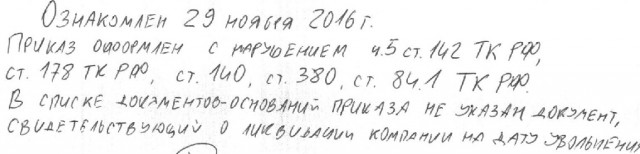 Ознакомлен 29 ноября 2016 г.
Приказ оформлен с нарушением ч.5 ст. 142 ТК РФ,
ст. 178 ТК РФ, ст. 140, ст. 380, ст. 84.1 ТК РФ.
В списке документов-оснований приказа не указан документ,
свидетельствующий о ликвидации компании на дату увольнения